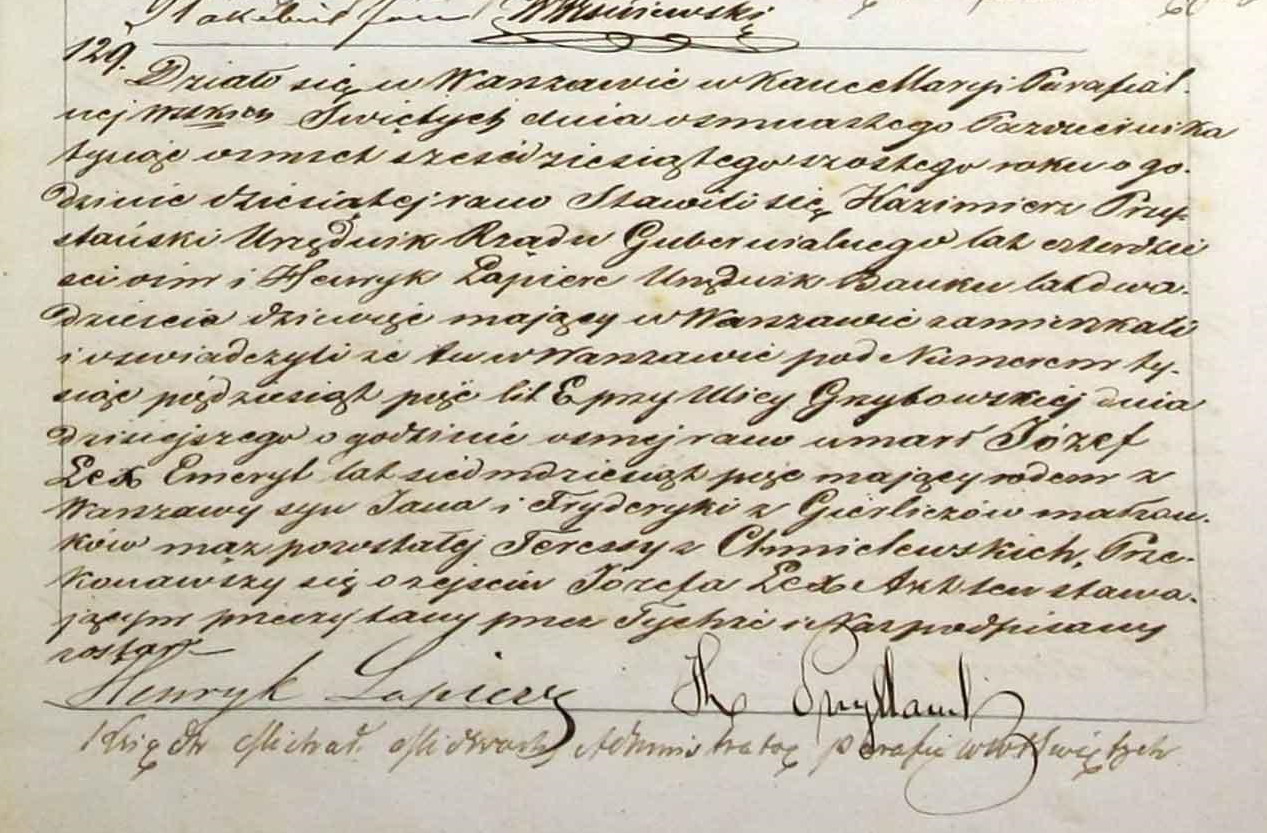 Wiśniewski
129. Działo się w Warszawie w Kancellaryi Parafial-
nej Wszkich Świętych dnia osmnastego Pazdziernika
tysiąc osmset sześćdziesiątego szostego roku o go-
dzinie dziesiątej rano Stawili się Kazimierz Przy-
stański Urzędnik Rządu Gubernialnego lat czterdzie
ści ośm i Henryk Lapiere Urzędnik Banku lat dwa-
dzieścia dziewięć mający w Warszawie zamieszkali
i oswiadczyli że tu w Warszawie pod Numerem ty-
siąc pięćdziesiąt pięć lit E przy Ulicy Grzybowskiej dnia
dzisiejszego o godzinie osmej rano umarł Józef
Lex Emeryt lat siedmdziesiąt pięć mający rodem z
Warszawy syn Jana i Fryderyki z Gierliczów małżon-
ków mąż pozostałej Teressy z Chmielewskich, Prze-
konawszy się o zejściu Józefa Lex Akt ten stawa-
jącym przeczytany przez Tychże i Nas podpisany
został
Henryk Lapierre K Przystański
Ksiądz Michał Administrator Parafii WW Świętych